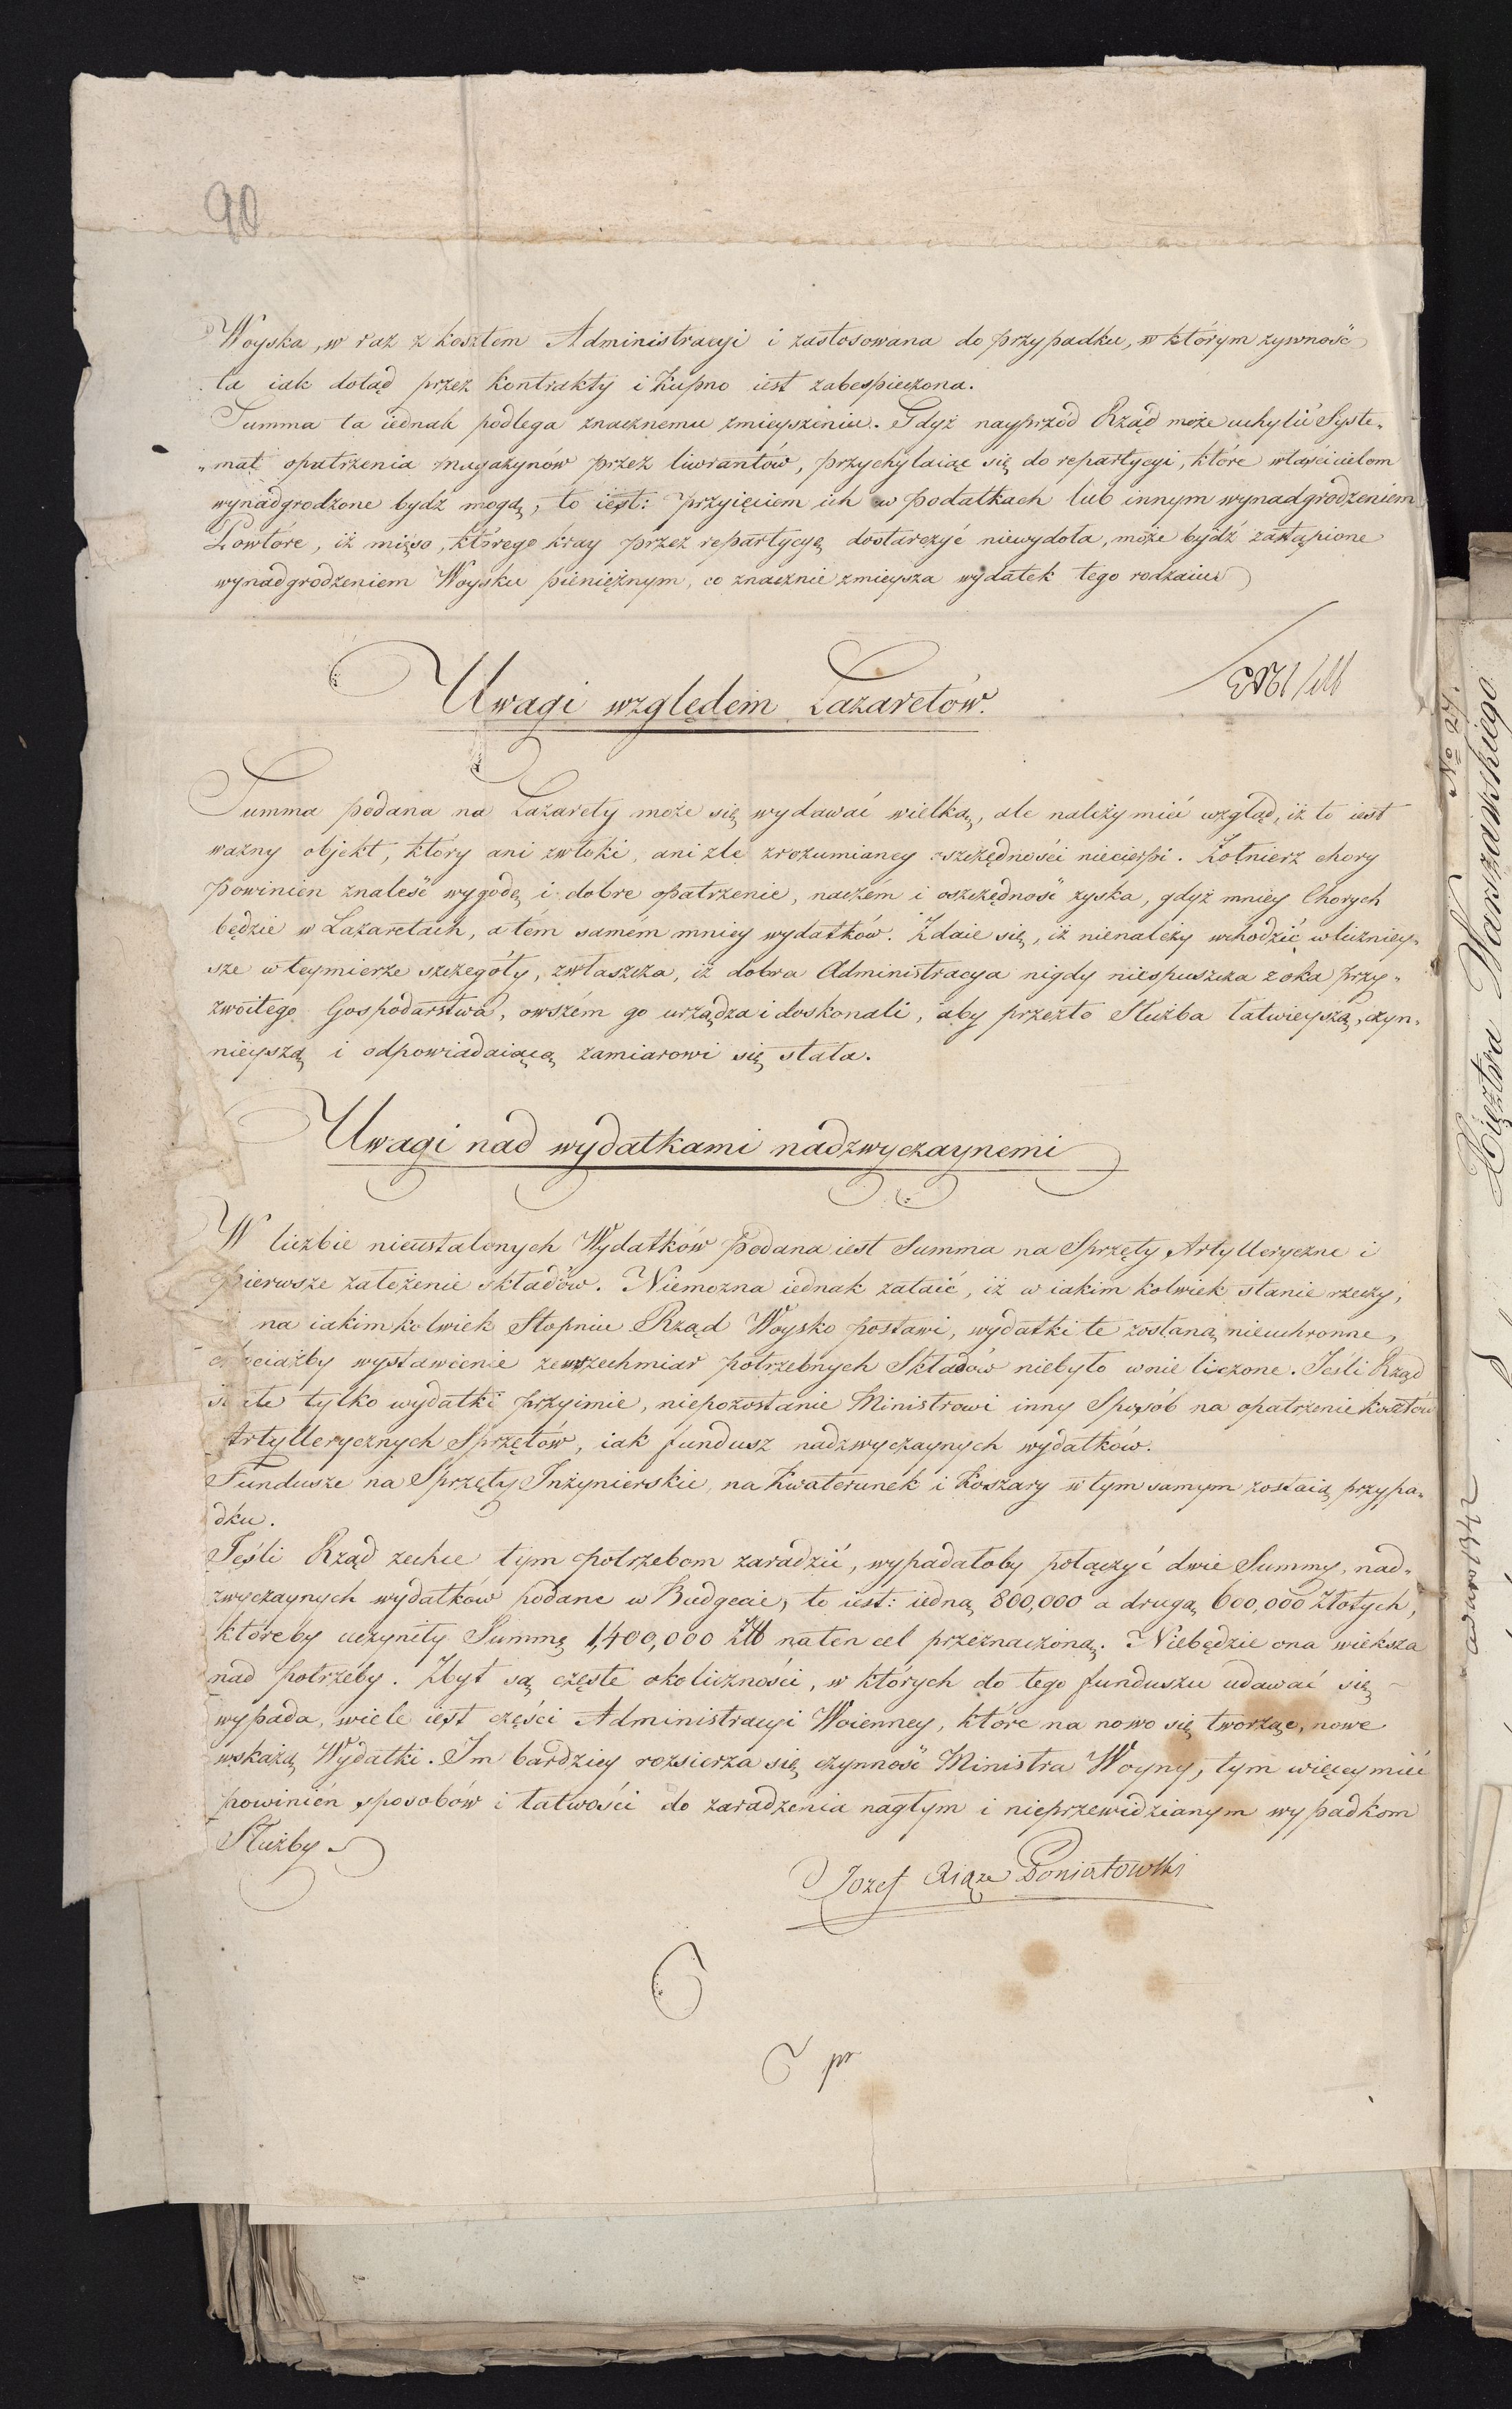 90
Woyska, w raz z kosztem Administracyi i zastosowana do przypadku, w którym zywność
ta iak dotąd przez kontrakty i kupno iest zabespieczona.
Summa ta iednak podlega znacznemu zmieyszeniu. Gdyż nayprzód Rząd może uchylić Syste„
„mat opatrzenia magazynów przez liwrantów, przychylaiąc się do repartycyi, które właścicielom
wynadgrodzone bydź mogą, to iest: przyięciem ich w podatkach lub innym wynadgrodzeniem
Powtóre, iż mięso, którego kray przez repartycyą dostarczyć niewydoła, może bydź zastąpione
wynadgrodzeniem Woysku pieniężnym, co znacznie zmieysza wydatek tego rodzaiu.
Uwagi względem Lazaretów.
Summa podana na Lazarety może się wydawać wielką, ale należy mieć wzgląd, iż to iest
wazny objekt, który ani zwłoki, ani zle zrozumianey oszczędności niecierpi. Żołnierz chory
powinien znaleść wygodę i dobre opatrzenie, naczém i oszczędność zyska, gdyż mniey Chorych
będzie w Lazaretach, a tém samém mniey wydatków. Zdaie się, iż nienależy wchodzić w liczniey„
sze w teymierze szczegóły, zwłaszcza, iż dobra Administracya nigdy niespuszcza z oka przy„
zwoitego Gospodarstwa, owszém go urządza i doskonali, aby przezto Służba łatwieyszą, czyn„
nieyszą i odpowiadaiącą zamiarowi się stała.
Uwagi nad wydatkami nadzwyczaynemi
W liczbie nieustalonych Wydatków podana iest Summa na Sprzęty Artylleryczne i
pierwsze założenie składów. Niemozna iednak zataić, iż w iakim kolwiek stanie rzeczy,
na iakimkolwiek Stopniu Rząd Woysko postawi, wydatki te zostaną nieuchronne,
chociażby wystawienie zewszechmiar potrzebnych Składów niebyło w nie liczone. Jeśli Rząd
tylko wydatki przyimie, niepozostanie Ministrowi inny Sposób na opatrzenie kosztów
Artyllerycznych Sprzętów, iak fundusz nadzwyczaynych wydatków.
Fundusze na Sprzęty Inżynierskie, na Kwaterunek i Koszary w tym samym zostaią przypa„
dku.
Jeśli Rząd zechce tym potrzebom zaradzić, wypadałoby połączyć dwie Summy, nad„
zwyczaynych wydatków podane w Budgecie, to iest: iedną 800,000 a drugą 600,000 Złotych,
któreby uczyniły Summę 1,400,000 Złł na ten cel przeznaczoną. Niebędzie ona większa
nad potrzeby. Zbyt są częste okoliczności, w których do tego funduszu udawać się
wypada, wiele iest części Administracyi Woienney, które na nowo się tworząc, nowe
wskażą Wydatki. Im bardziey rozsierza się czynność Ministra Woyny, tym więcey mieć
powinién sposobów i łatwości do zaradzenia nagłym i nieprzewidzianym wypadkom
Służby
Jozef Xiąże Poniatowski
pr
No 27.
Xięztwa Warszawskiego